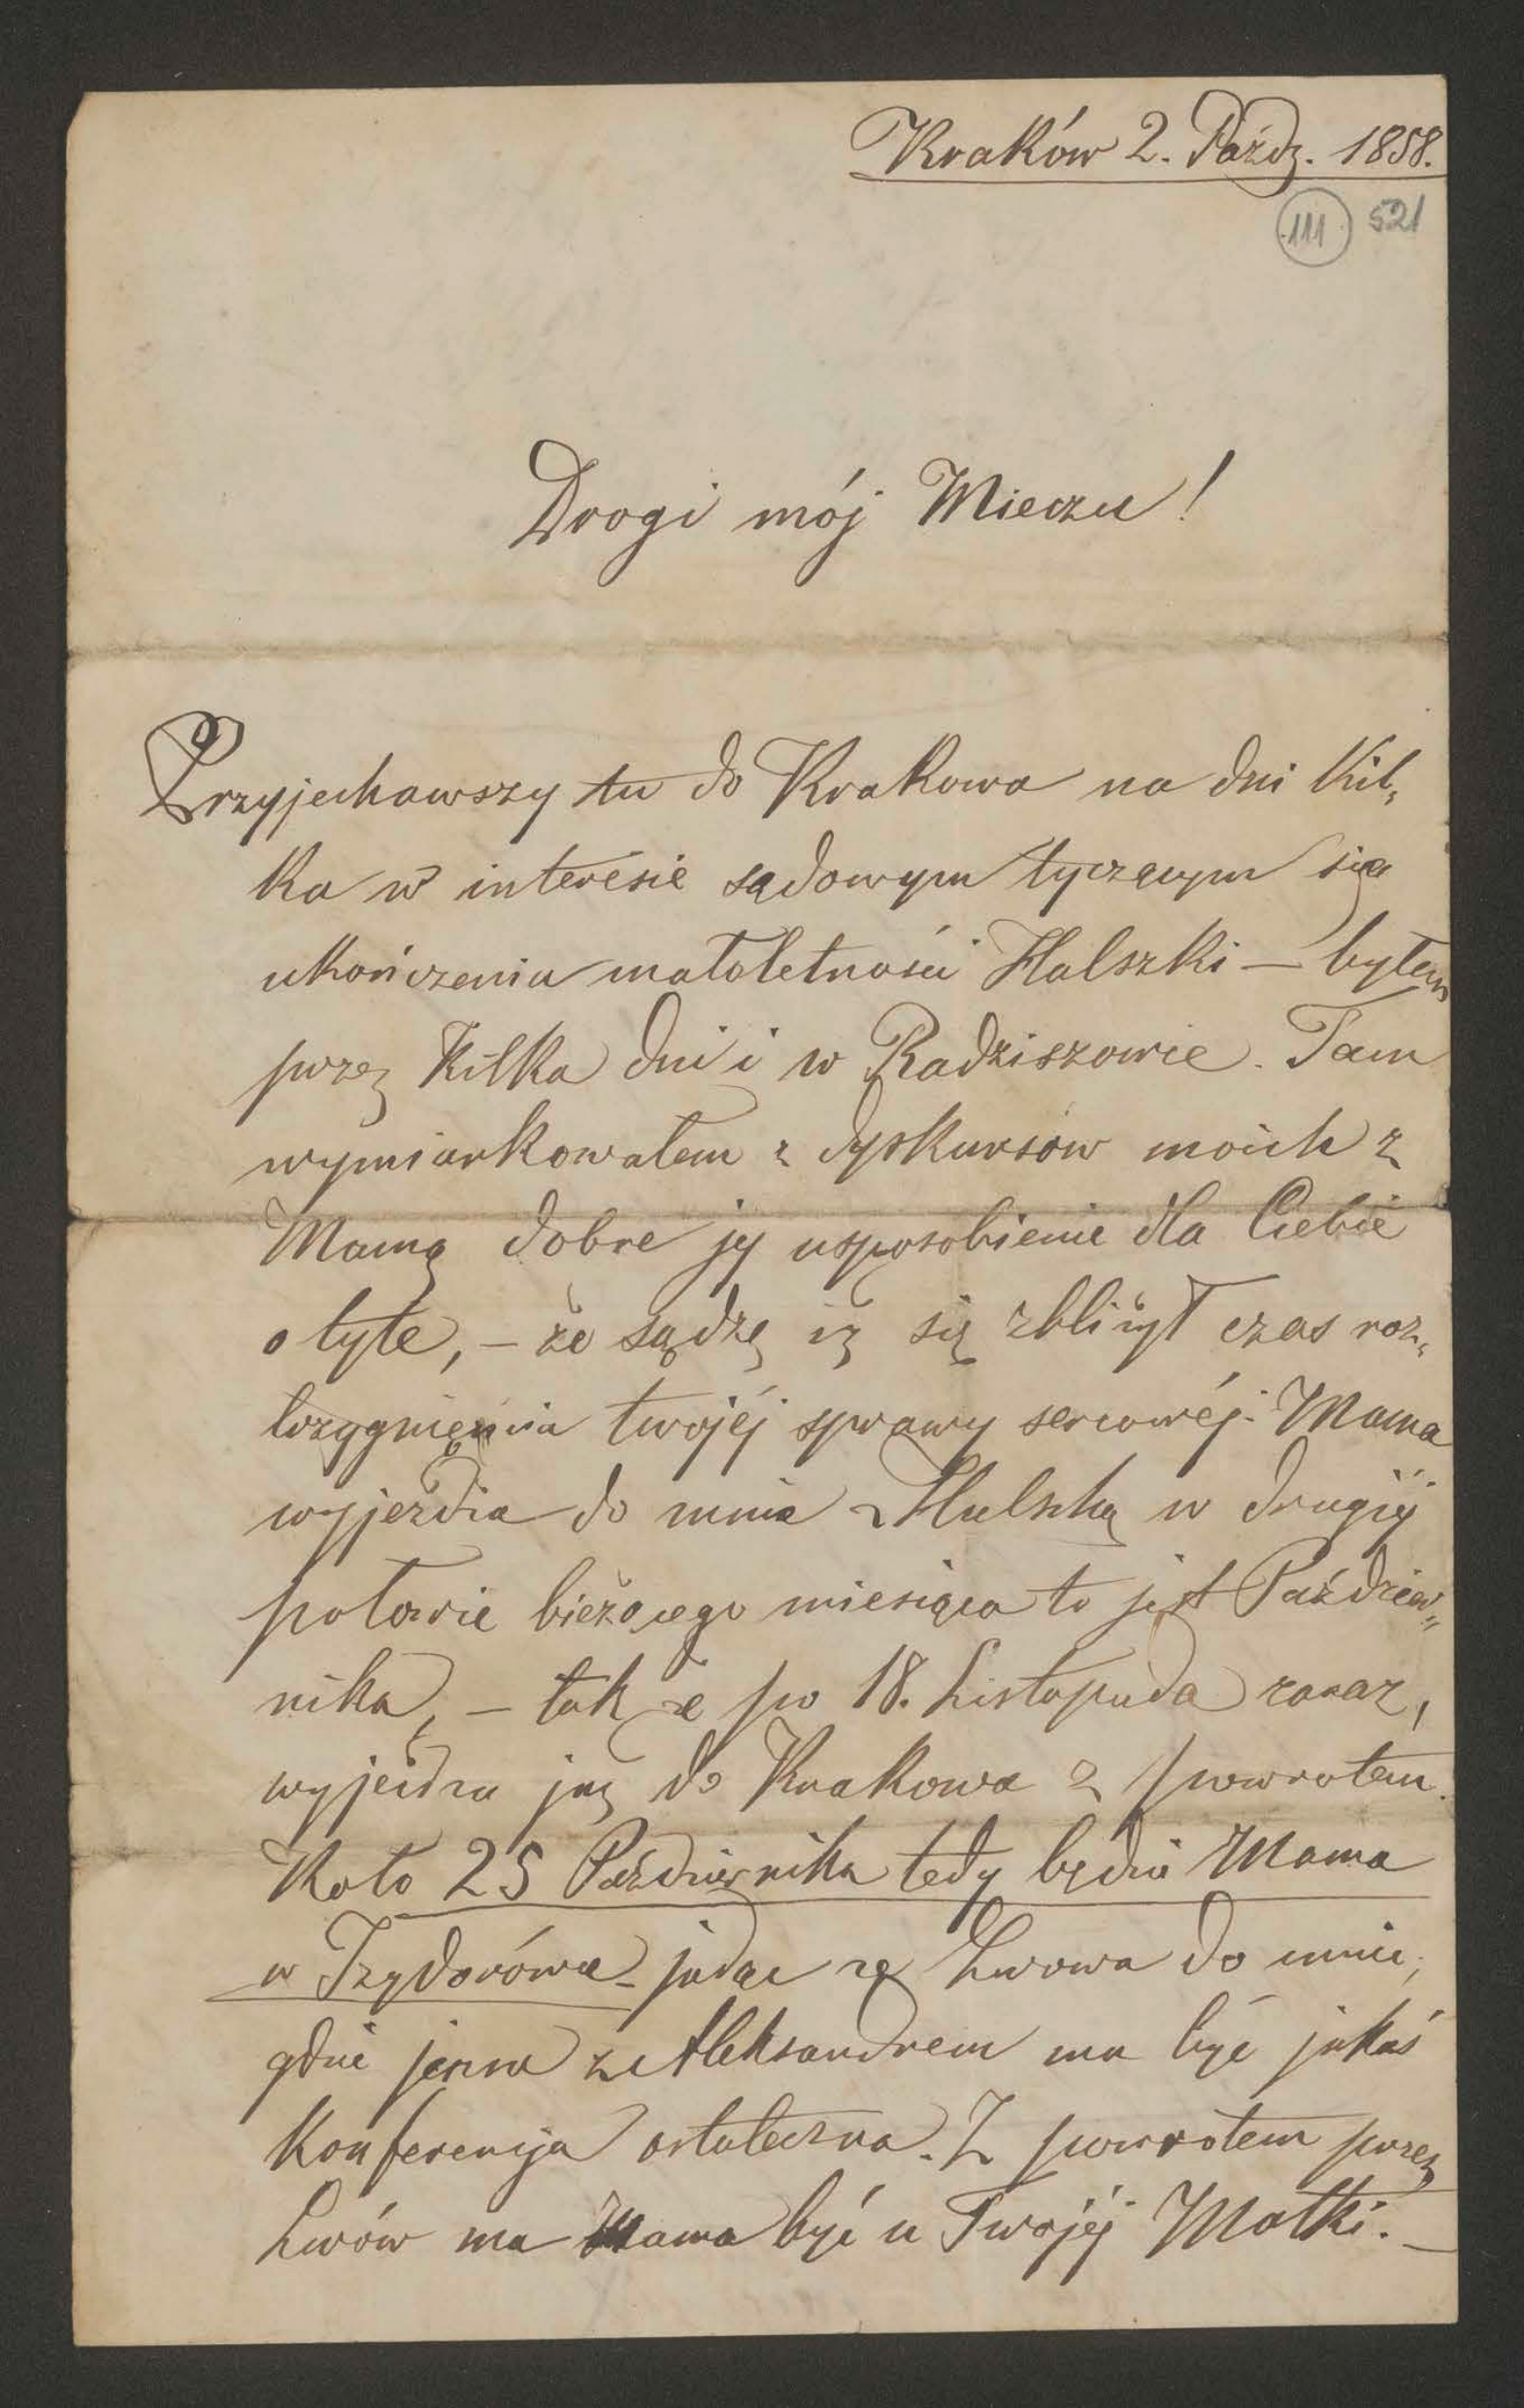 Kraków 2. Paźdz. 1858.
111 521
Drogi mój Mieczu!
Przyjechawszy tu do Krakowa na dni kil„
ka w interesie sądowym tyczącym się
ukończenia małoletności Halszki — byłem
przez kilka dni i w Radziszowie. Tam
wymiarkowałem z dyskursów moich z
Mamą dobre jej usposobienie dla Ciebie
o tyle, — że sądzę iż się zbliżył czas roz„
trzygnienia twojéj sprawy sercowéj. Mama
wyjeżdża do mnie z Halszką w drugiéj
połowie bieżącego miesiąca to jest Paździer„
nika, — tak że po 18. Listopada zaraz,
wyjeżdża już do Krakowa z powrotem.
Koło 25 Października tedy będzie Mama
w Izydorówce — jadąc ze Lwowa do mnie,
gdzie jeszcze z Aleksandrem ma być jakaś
Konferencyja ostateczna. Z powrotem przez
Lwów ma Mama być u Twojéj Matki. —